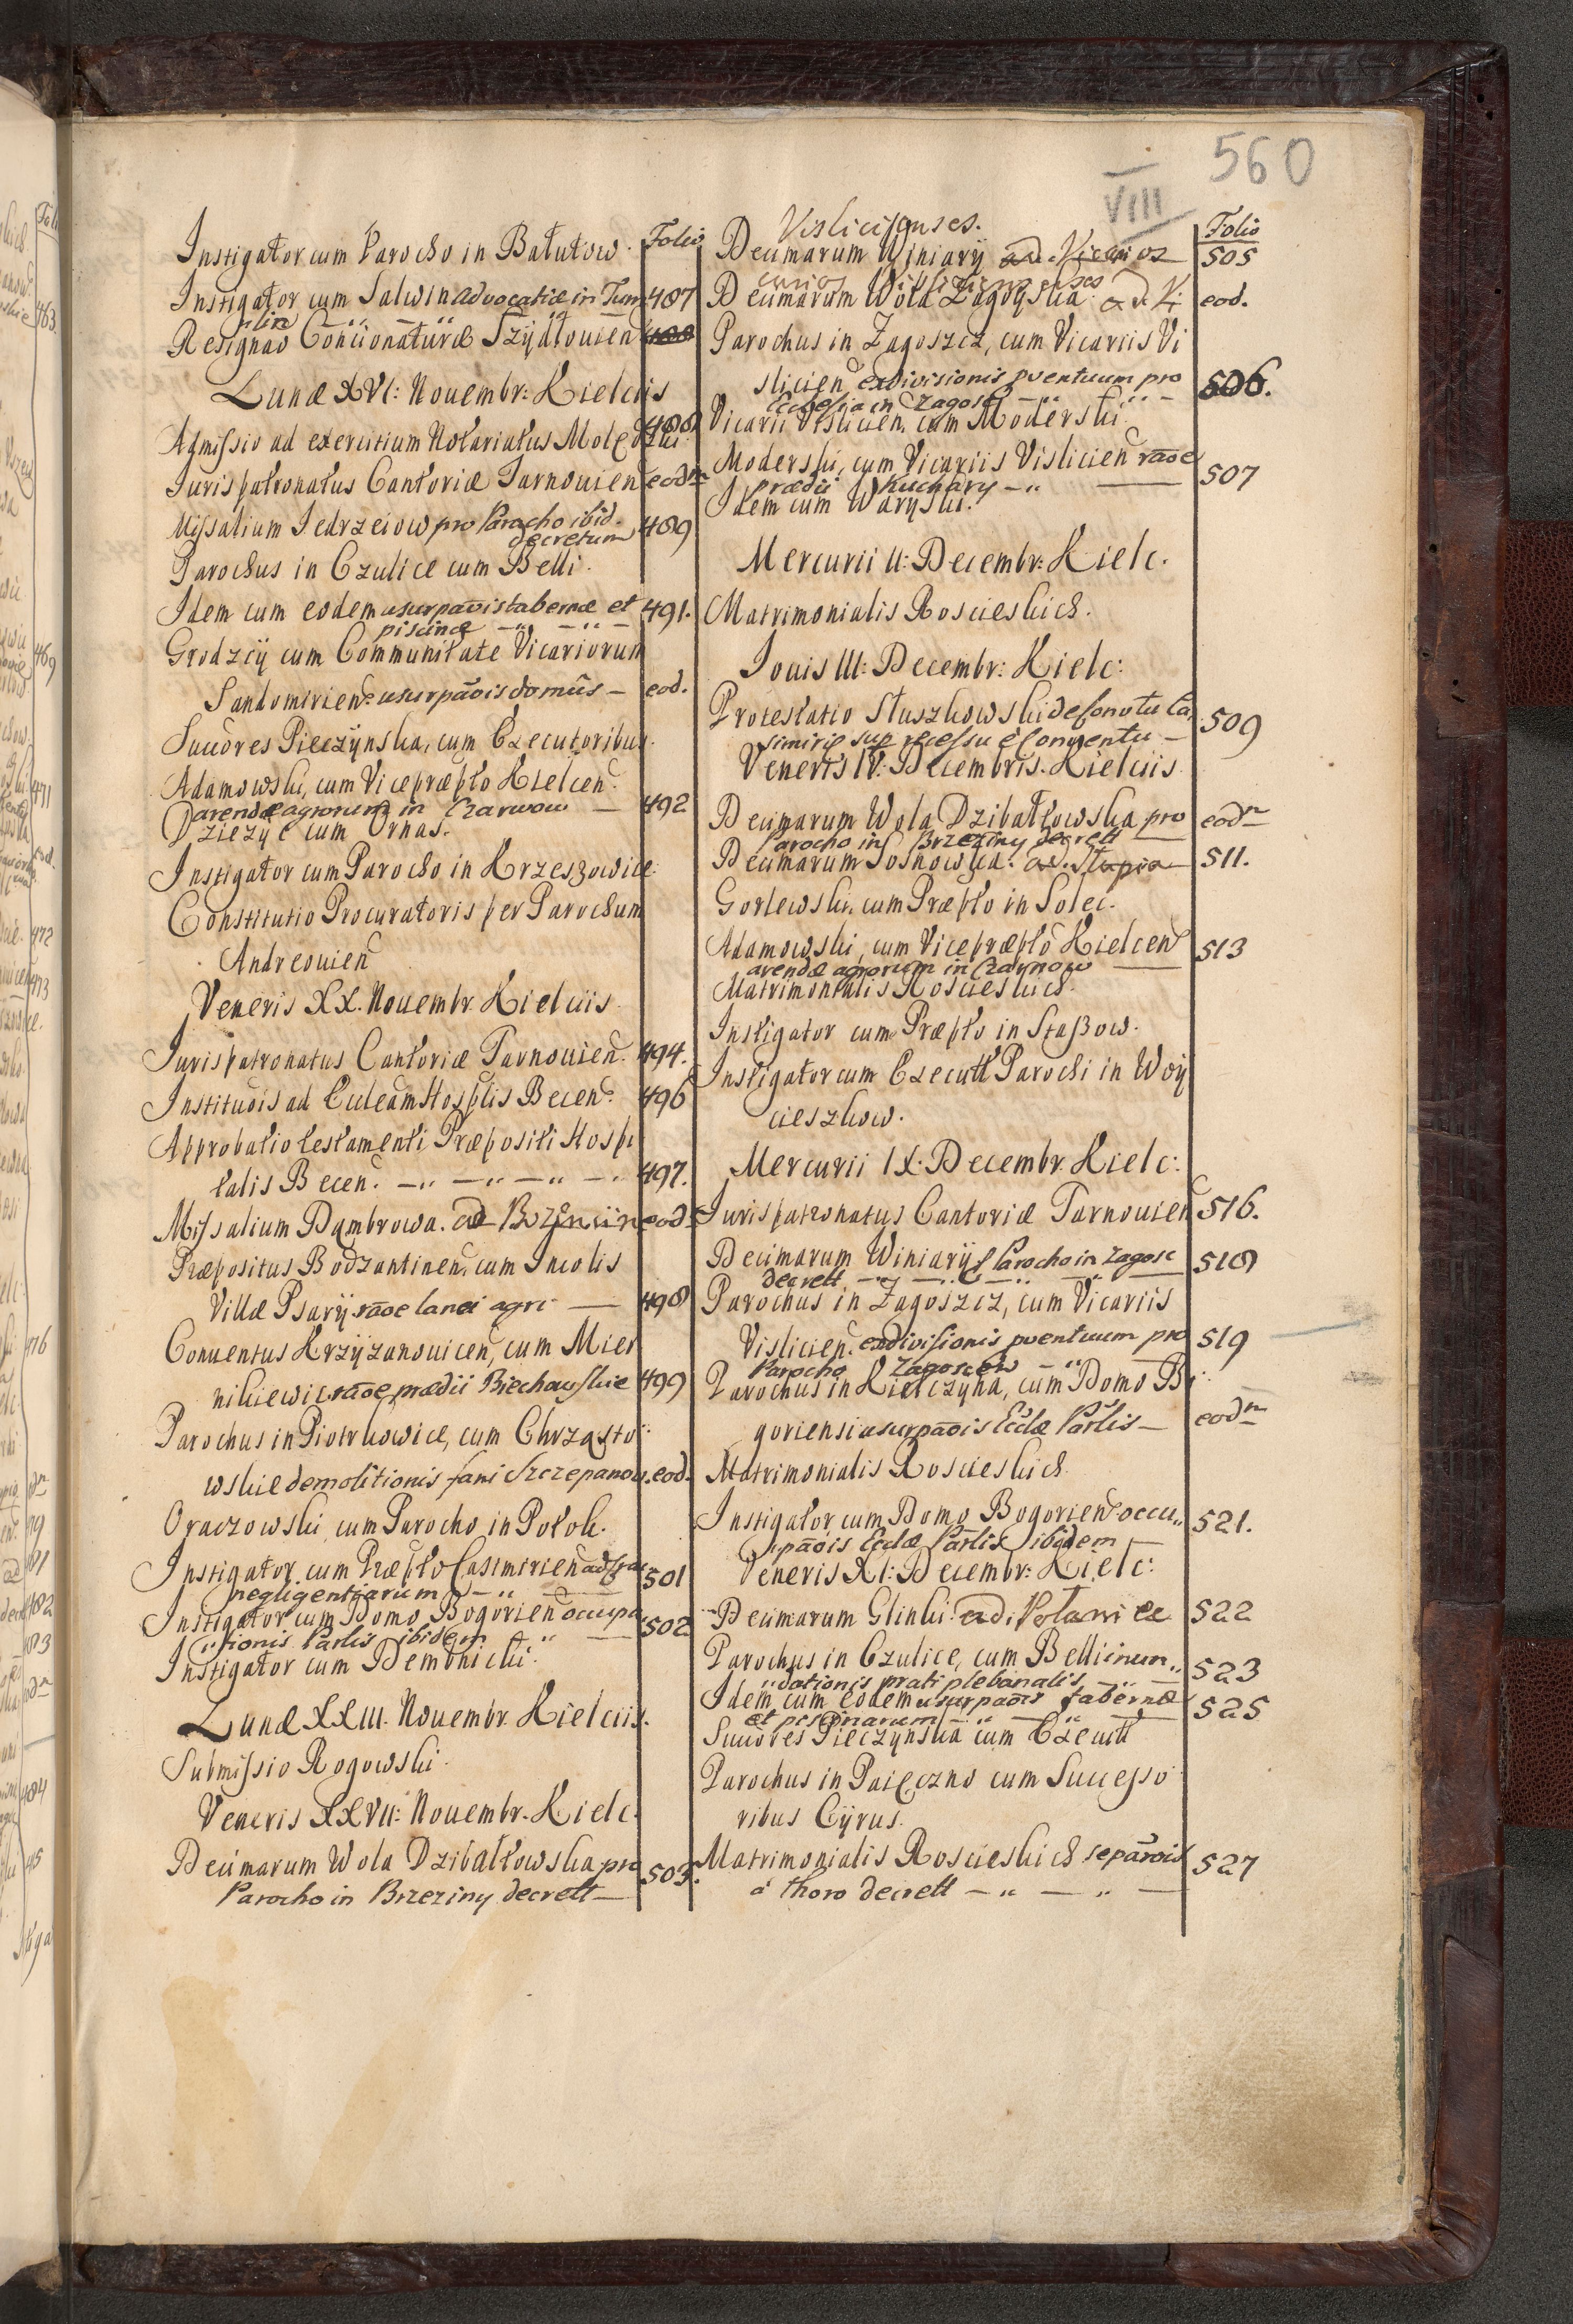 560
VIII
Folio
Instigator cum Parocho in Batutow.
Instigator cum Salwin advocatiæ in Tum 487
plin
Resignao Concionaturæ Szÿdłouien 488
Lunæ XVI: Nouembr: Kielciis
Admissio ad exercitium Notariatus Molędzki 488
Jurispatronatus Cantoriæ Tarnouien eodm
Missalium Jedrzeiow pro Parocho ibid. 489
decretum
Parochus in Czulice cum Belli.
Idem cum eodem usurpaōis tabernæ et 491.
piscinæ
Grodzcÿ cum Communitate Vicariorum
Sandomirien: usurpāois domûs – eod.
Succōres Pieczÿnska, cum Executoribus.
Adamowski, cum Vicepræpto Kielcen
arendæ agrorum in Czarnow — 492
Dzięzÿc cum Ornas.
Instigator cum Parocho in Krzeszowice.
Constitutio Procuratoris per Parochum
Andreouien
Veneris XX. Nouembr. Kielciis.
Jurispatronatus Cantoriæ Tarnouien. 494.
Instituōis ad Ecleam Hosplis Becen. 496
Approbatio testamenti Præpositi Hospi
talis Becen. 497.
Missalium Dambrowa. ad Bozęncin eod.
Præpositus Bodzantinen, cum Incolis
Villæ Psarÿ rāoe lanei agri — 498
Conuentus Krzÿzanouicen, cum Mier
nikiewic rāoe prædii Biechowskie 499
Parochus in Piotrkowice, cum Chrząsto
wskie demolitionis fani Szczepanow. eod.
Oraczowski cum Parocho in Potok.
Instigator cum Præpto Casimirien ad
negligentiarum 501
Instigator cum Domo Bogorien occupa 502
tionis Partis ibidem
Instigator cum Dembnicki.
Lunæ XXIII. Nouembr. Kielciis.
Submissio Rogowski.
Veneris XXVII: Nouembr. Kielc.
Decimarum Wola Dzibałtowska pro 503.
Parocho in Brzeziny decrett
Visliciēnses.
Folio
Decimarum Winiarÿ ad Vicarios 505
Decimarum Wola Zagoÿska. ad Vi eod.
carios Visliciēnses
Parochus in Zagoszcz, cum Vicariis Vi
slicien, exdivisionis puentuum pro 506.
Ecclesia in Zagosc
Vicarii Vislicien. cum Moderski
Moderski, cum Vicariis Vislicien rāoe 507
prædii Kuchary
Idem cum Warÿski.
Mercurii II: Decembr: Kielc.
Matrimonialis Roscieskich.
Jouis III: Decembr: Kielc:
Protestatio Słuszkowski de Conotu Ca 509
simirie sup recessu è Conventu
Veneris IV: Decembris. Kielciis
Decimarum Wola Dzibałtowska pro eodm
Parocho in Brzeziny decrett
Decimarum Sosnowka. ad Stupia 511.
Gorlewski, cum Præpto in Solec.
Adamowski, cum Vicepræpto Kielcen 513
arendæ agrorum in Czarnow
Matrimonialis Roscieskich.
Instigator cum Præpto in Staszow.
Instigator cum Executt Parochi in Woÿ
cieszkow.
Mercurii IX: Decembr. Kielc:
Jurispatronatus Cantoriæ Tarnouien 516.
Decimarum Winiarÿ Parocho in Zagosc 518
decrett
Parochus in Zagoszcz, cum Vicariis
Vislicien. exdivisionis puentuum pro 519
Parocho Zagoscen
Parochus in Kiełczÿna, cum Domo Bo
goriensi usurpāois Eclæ Partis — eodm
Matrimonialis Roscieskich
Instigator cum Domo Bogorien occu 521.
pāois Eclæ Partis ibidem
Veneris XI: Decembr: Kielc:
Decimarum Glinki. ad. Połaniec 522
Parochus in Czulice, cum Belli inun 523
dationis prati plebanalis
Idem cum eodem usurpaōis tabernæ 525
et piscinarum
Succōres Pieczÿnska cum Executt
Parochus in Paięczno cum Successo
ribus Cÿrus.
Matrimonialis Roscieskich sepārois 527
à thoro decrett